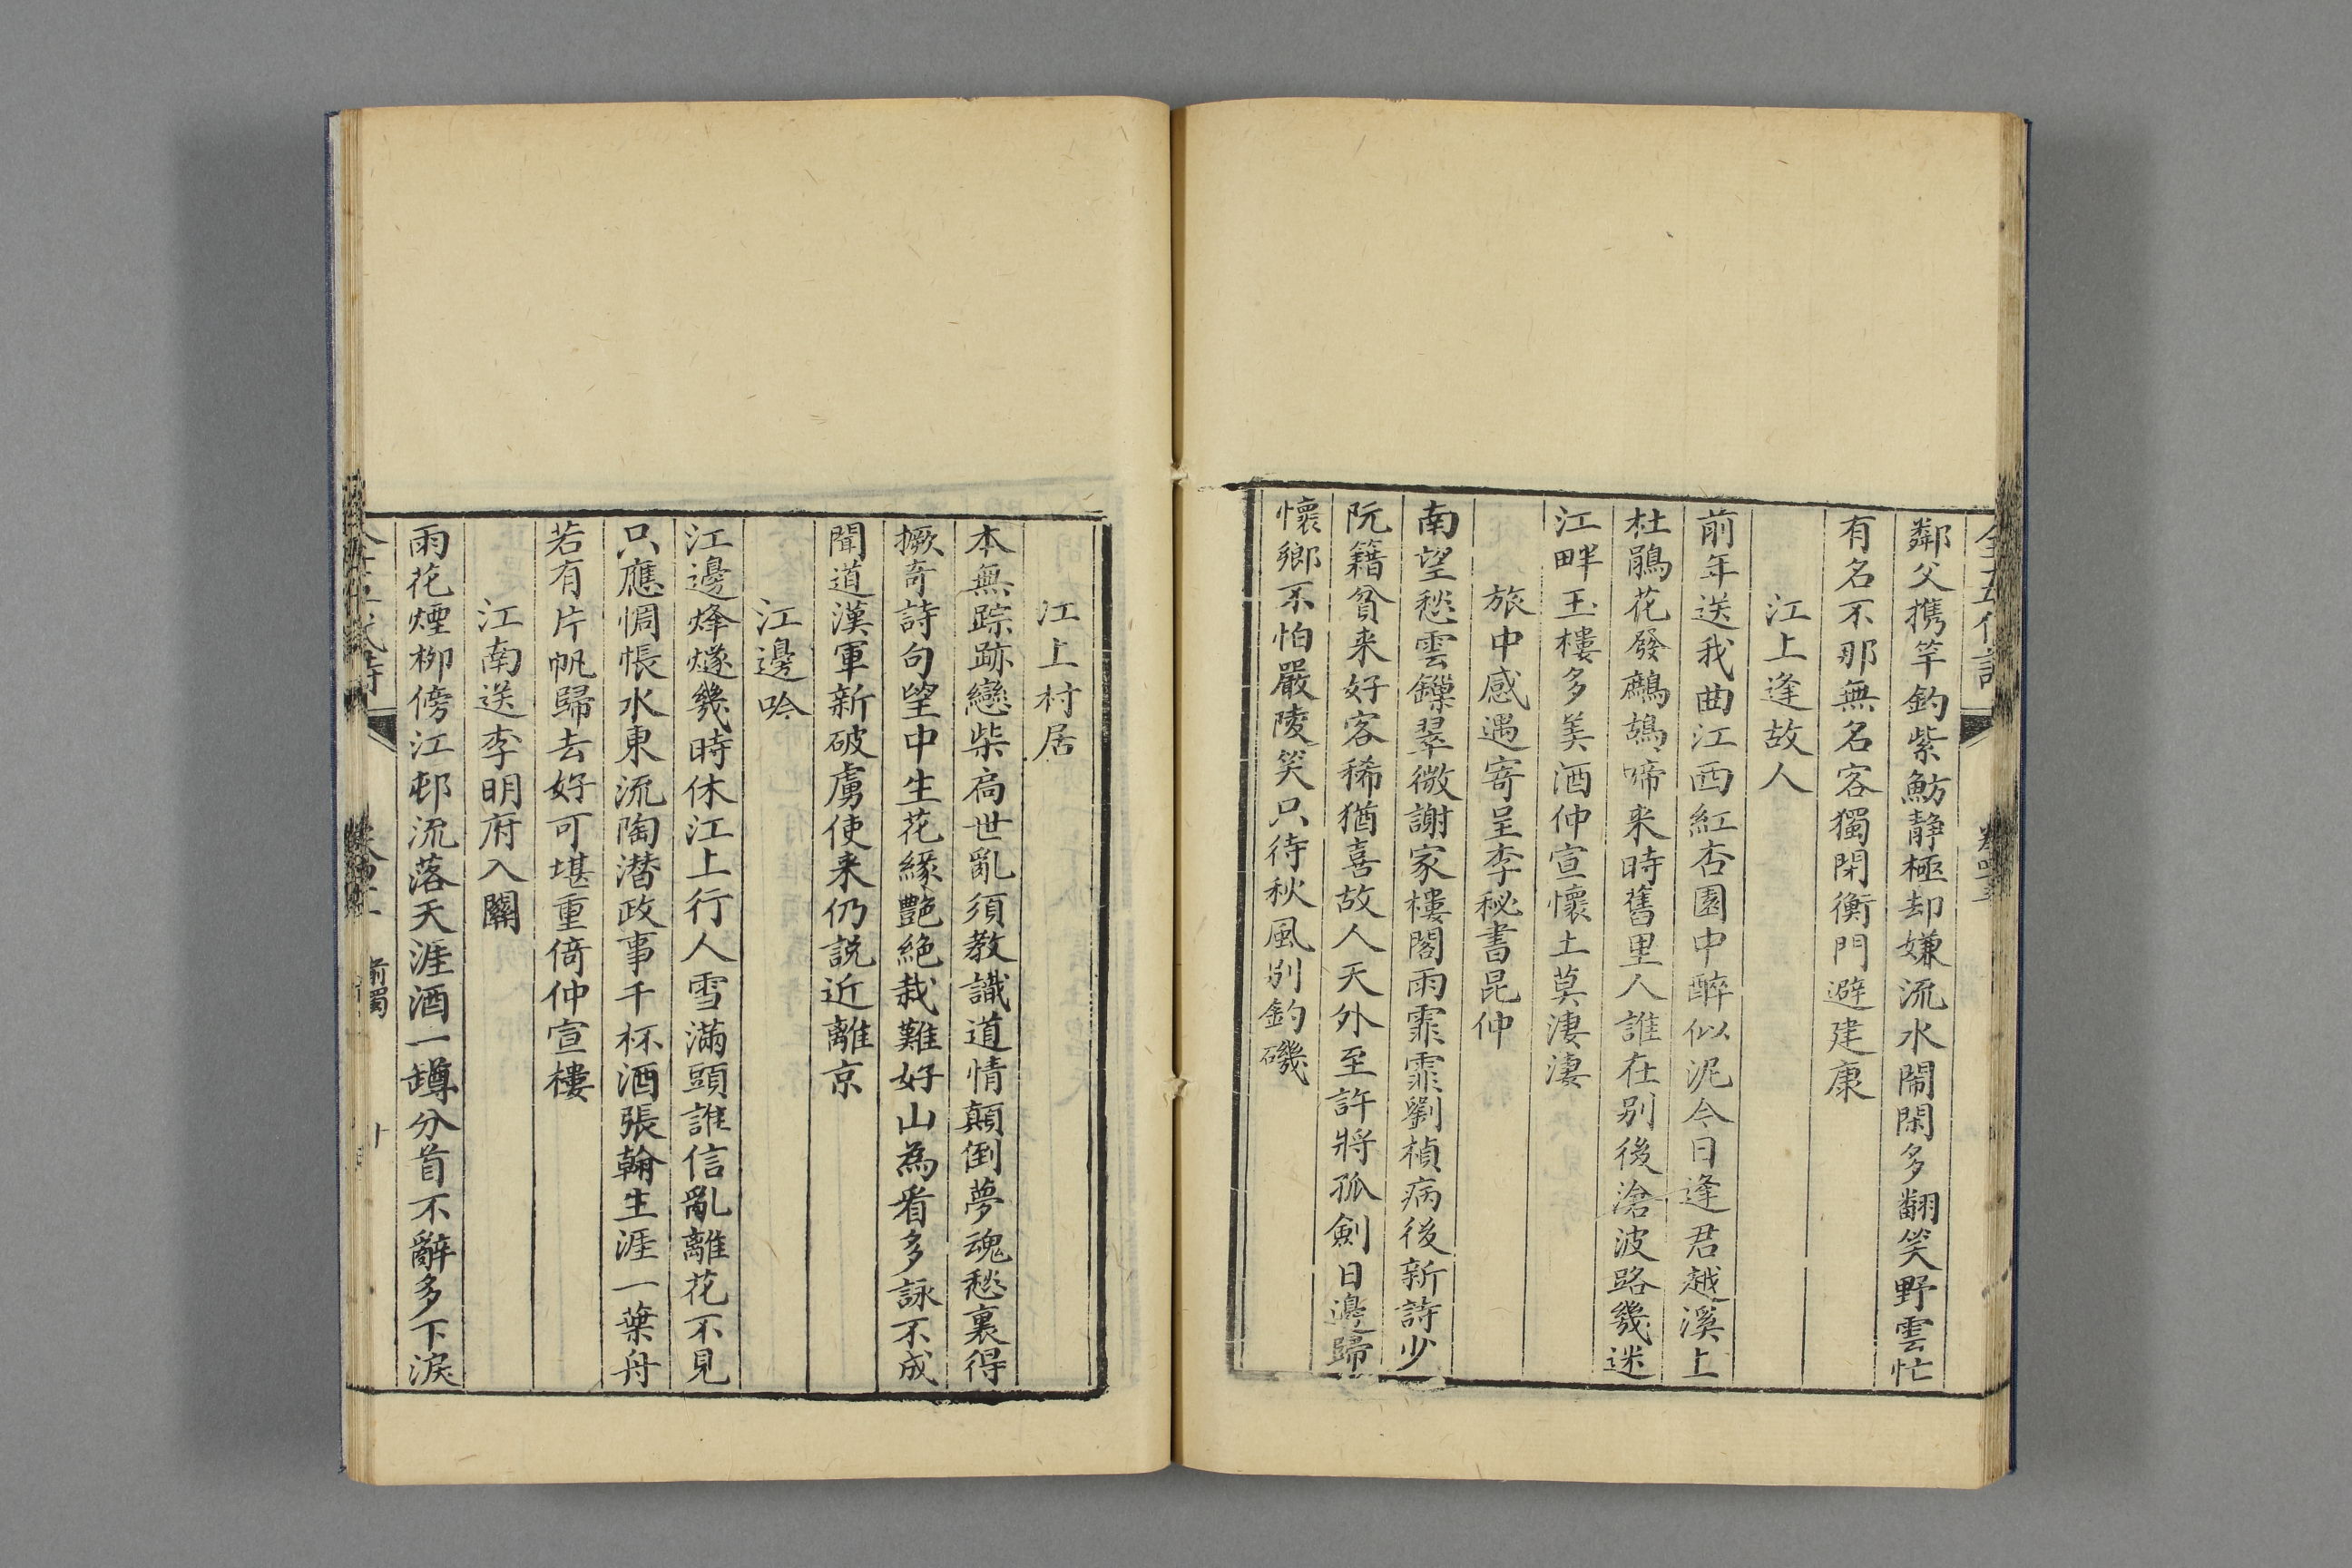 鄰父携竿釣紫魴静極却嫌流水鬧閑多翻笑野雲忙
有名不那無名客獨閉衡門避建康
江上逢故人
前年送我曲江西紅杏園中醉似泥今日逢君越溪上
杜鵑花發鷓鴣啼来時舊里人誰在别後滄波路幾迷
江畔玉樓多美酒仲宣懷土莫凄凄
旅中感遇寄呈李秘書昆仲
南望愁雲鏁翠微謝家樓閣雨霏霏劉楨病後新詩少
阮籍貧来好客稀猶喜故人天外至許將孤劍日邊歸
懷鄉不怕嚴陵笑只待秋風别釣磯
江上村居
本無踪跡戀柴扃世亂須教識道情顛倒夢魂愁裏得
撅竒詩句望中生花緣艷絶栽難好山為看多詠不成
聞道漢軍新破虜使来仍説近離京
江邊吟
江邊烽燧幾時休江上行人雪滿頭誰信亂離花不見
只應惆悵水東流陶潜政事千杯酒張翰生涯一葉舟
若有片帆歸去好可堪重倚仲宣樓
江南送李明府入關
雨花煙柳傍江邨流落天涯酒一罇分首不辭多下淚